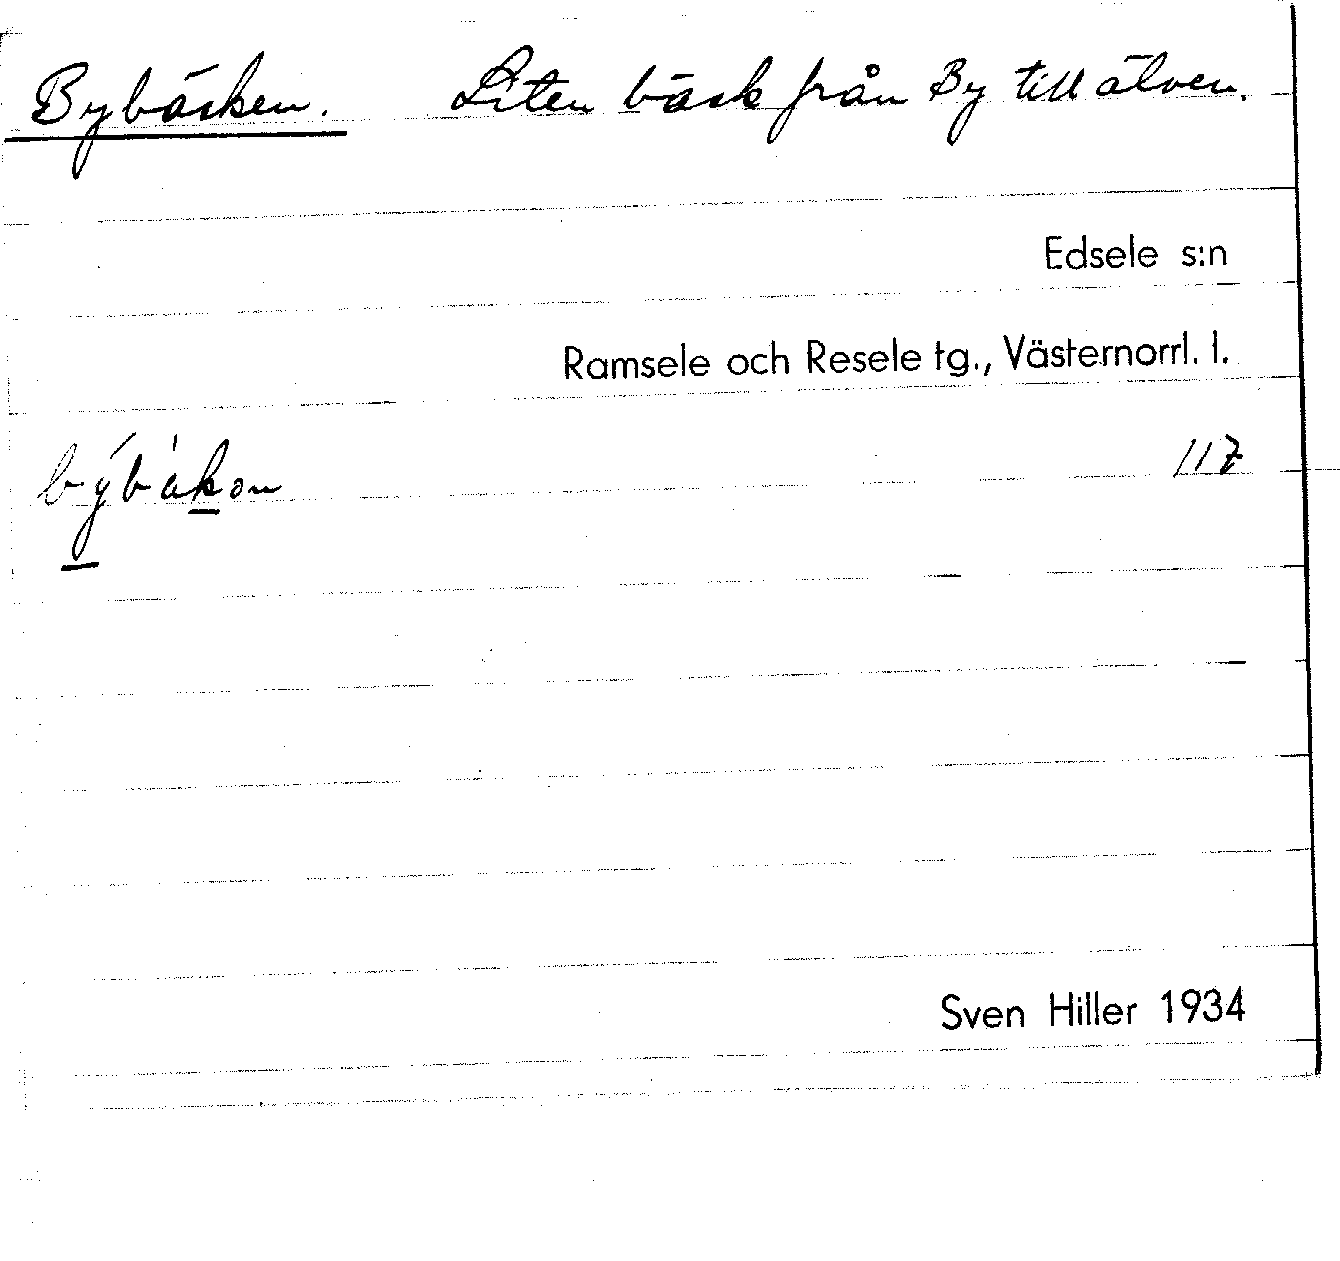 Bybäcken. Liten bäck från By till älven.
Edsele s:n
Ramsele och Resele tg., Västernorrl. l.
117
Sven Hiller 1934